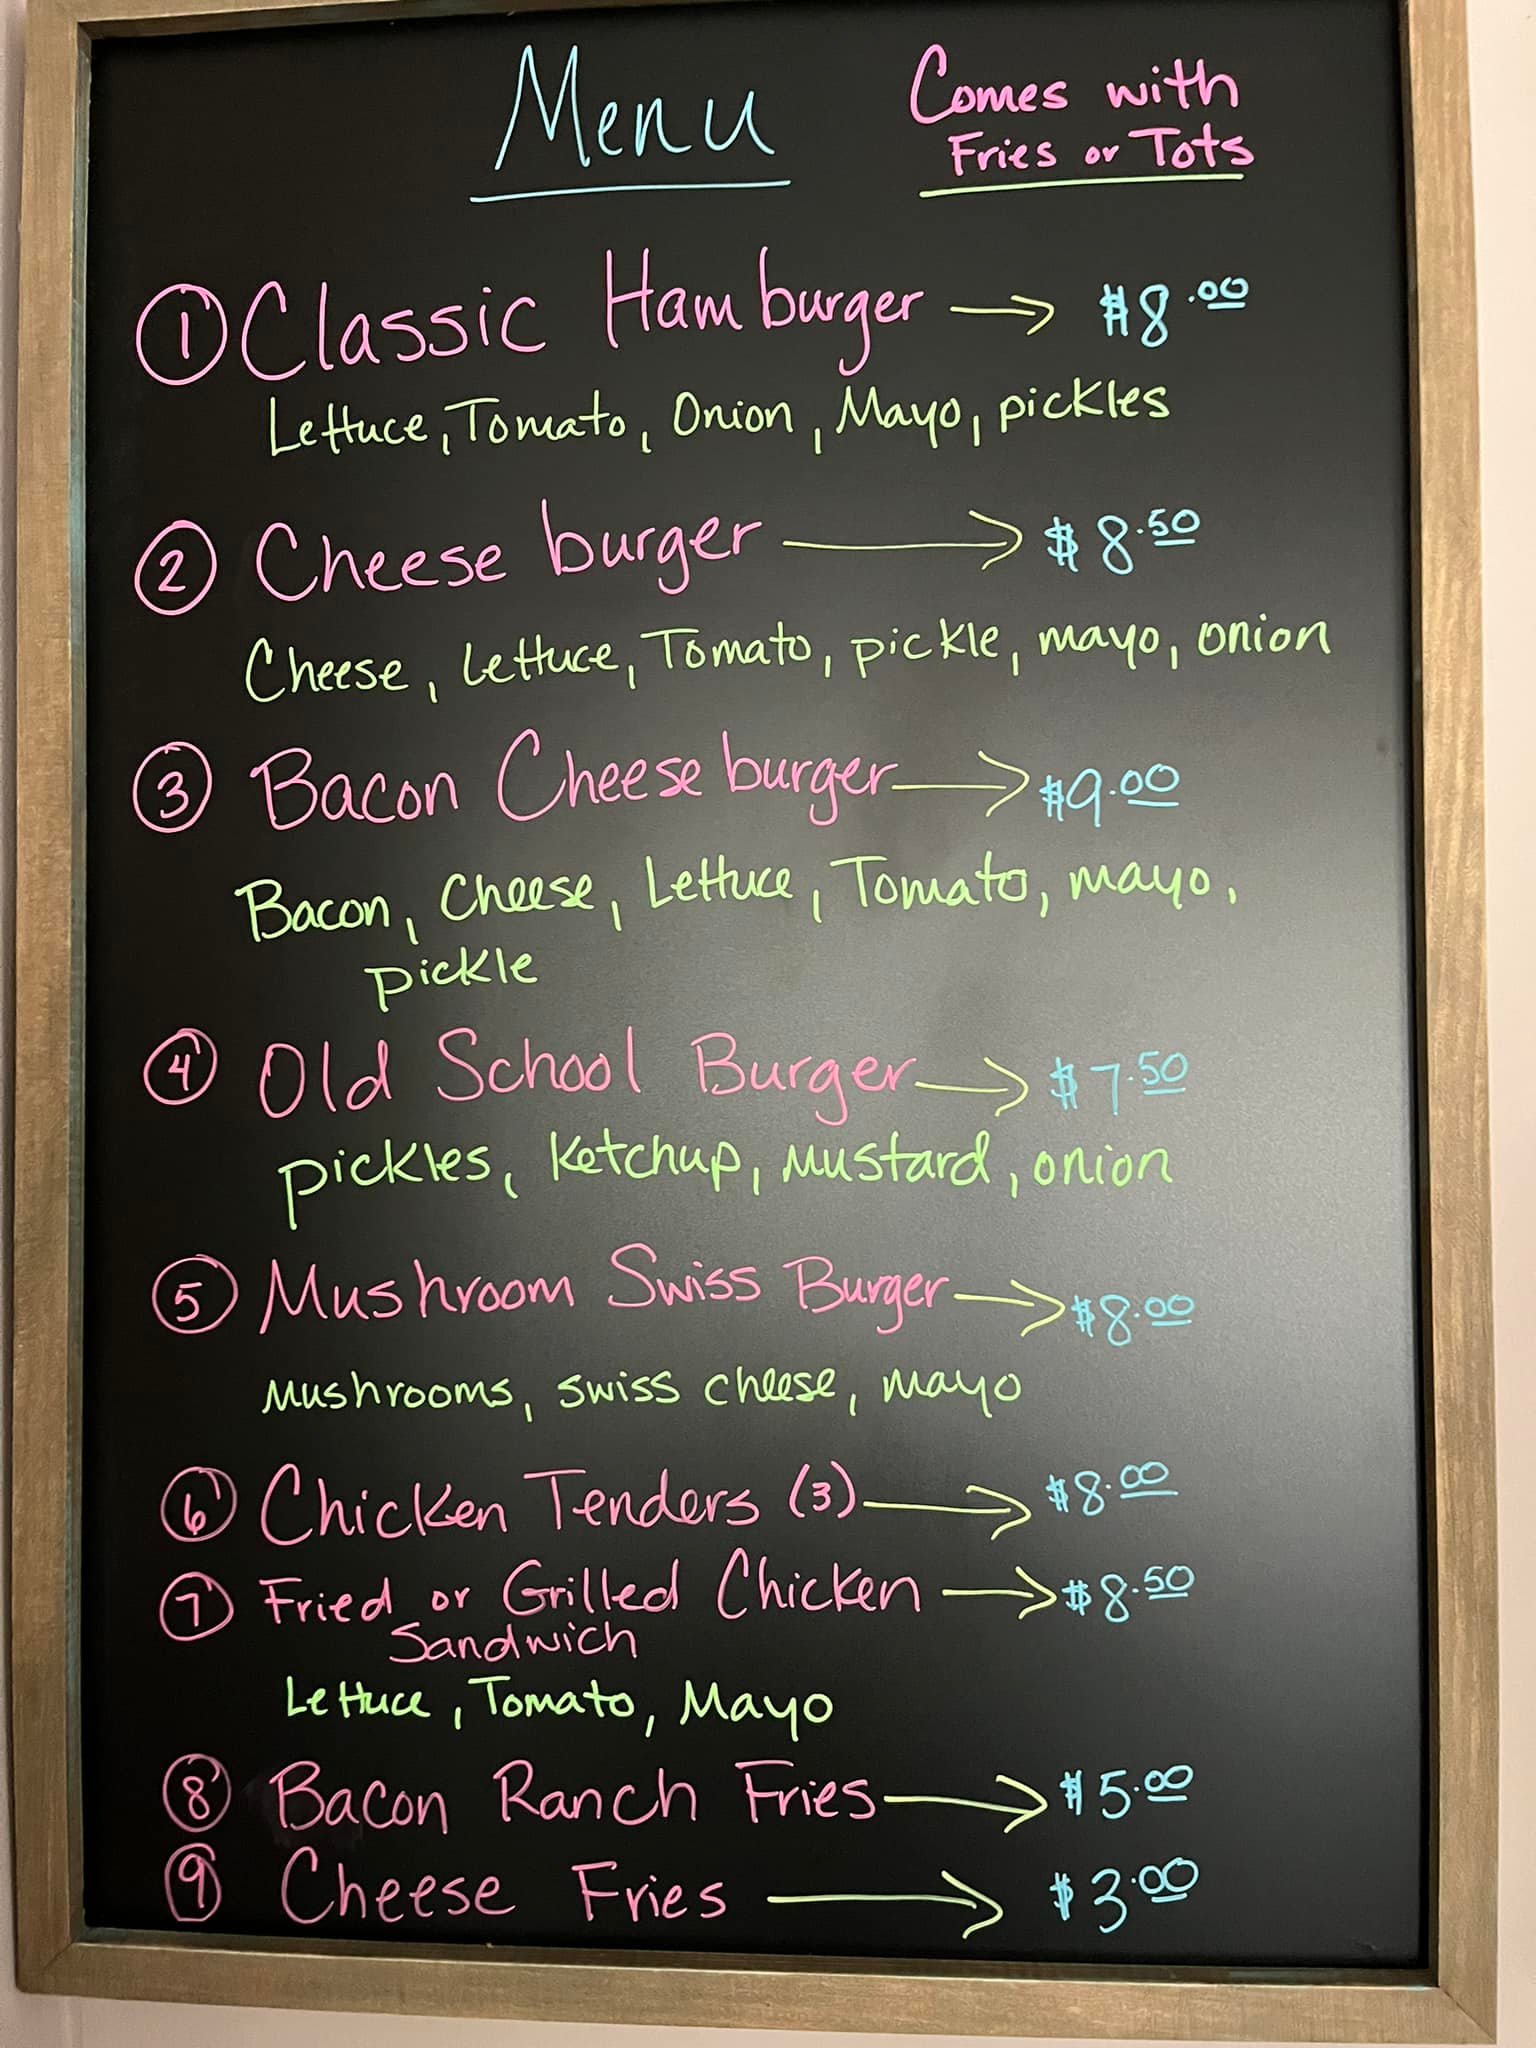 Menu
Comes with
Fries or Tots
1 Classic Hamburger → $8.00
Lettuce, Tomato, Onion, Mayo, pickles
2 Cheese burger → $8.50
Cheese, Lettuce, Tomato, pickle, mayo, onion
3 Bacon Cheese burger → $9.00
Bacon, Cheese, Lettuce, Tomato, mayo,
pickle
4 Old School Burger → $7.50
pickles, Ketchup, Mustard, onion
5 Mushroom Swiss Burger → $8.00
Mushrooms, swiss cheese, mayo
6 Chicken Tenders (3) → $8.00
7 Fried or Grilled Chicken → $8.50
Sandwich
Lettuce, Tomato, Mayo
8 Bacon Ranch Fries → $5.00
9 Cheese Fries → $3.00